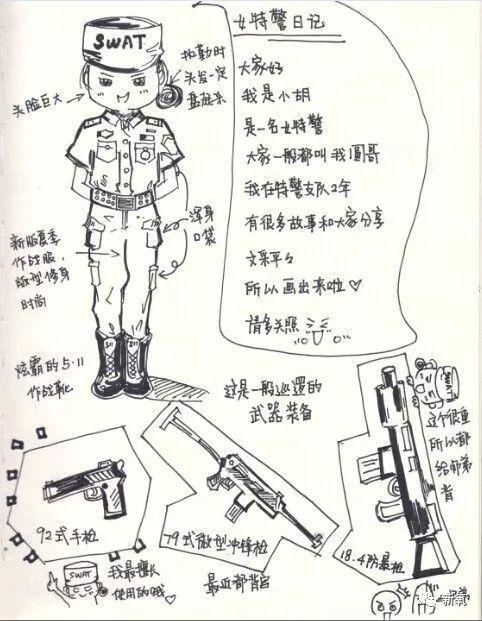 女特警日记
大家好
我是小胡
是一名女特警
大家一般都叫我圆哥
我在特警支队2年
有很多故事和大家分享
文采平平
所以画出来啦♡
请多关照
SWAT
头脸巨大
执勤时
头发一定
盘起来
浑身
口袋
新版夏季
作战服,
版型修身
时尚
炫霸的5.11
作战靴
这是一般巡逻的
武器装备
92式手枪
SWAT
我最擅长
使用的哦♡
79式微型冲锋枪
最近都背
18.4防暴枪
SWAT
这个很重
所以都
给
背
新氧